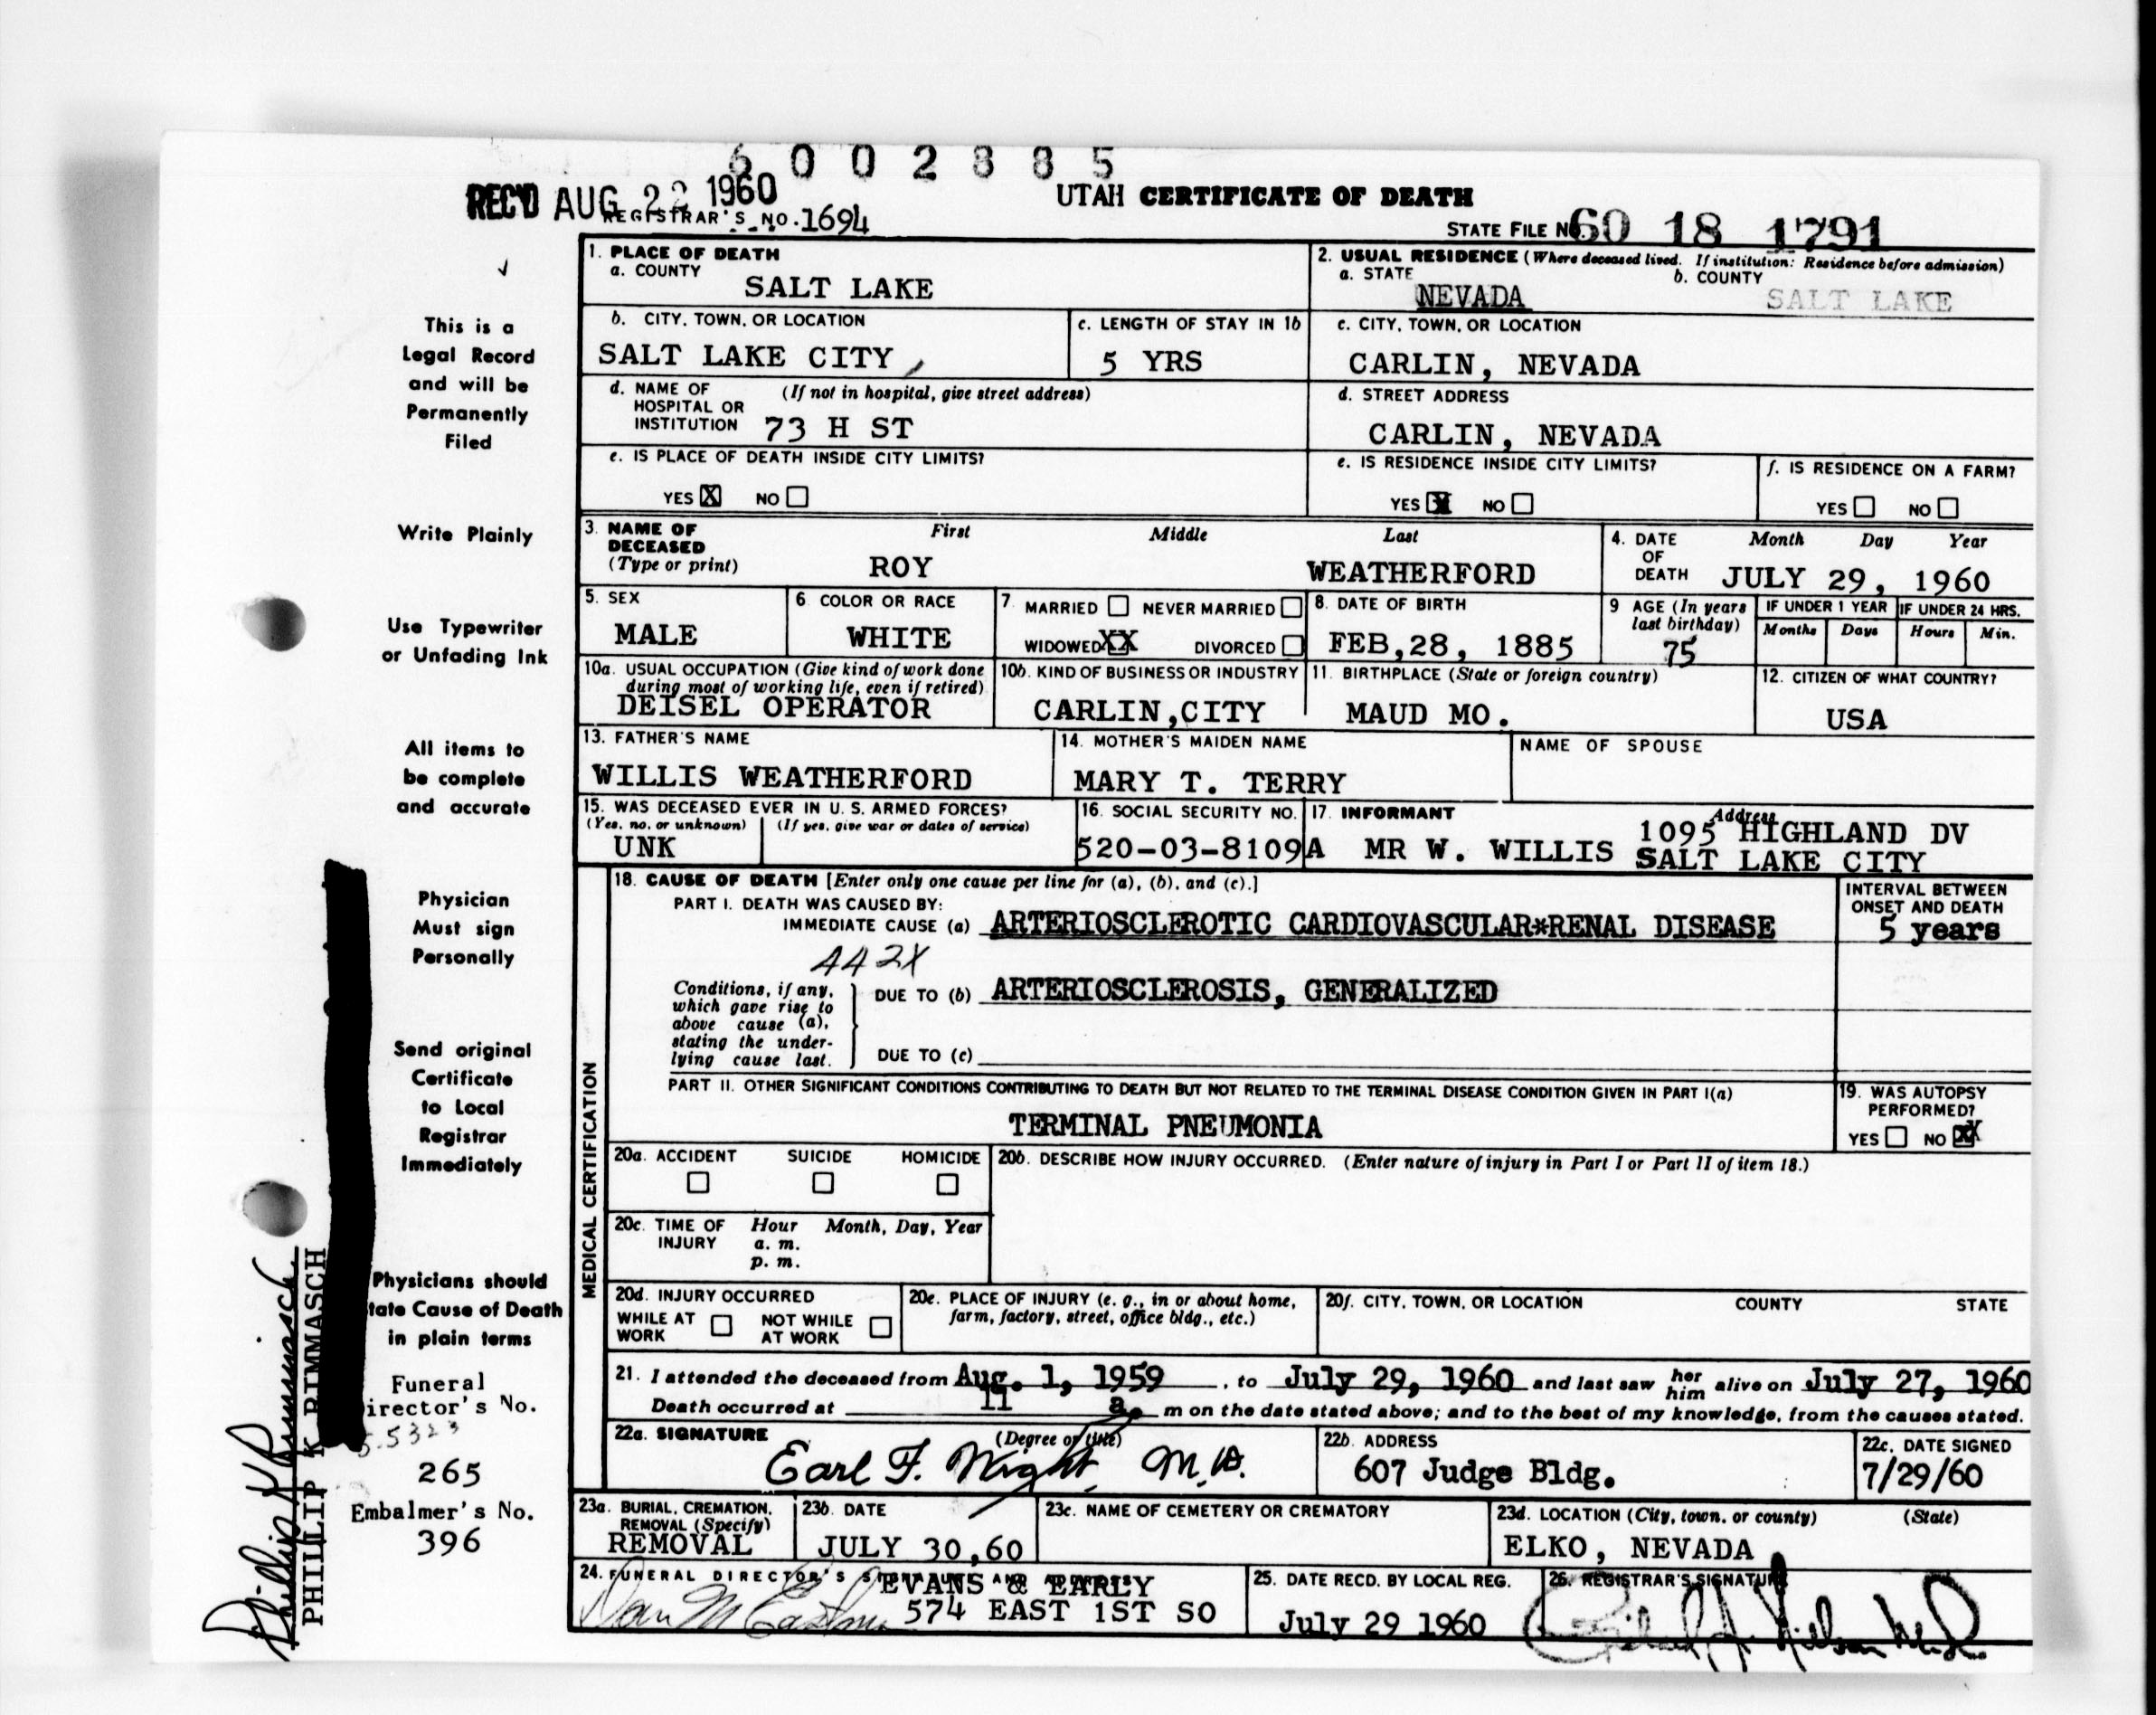 6002885
REC'D AUG 22 1960
UTAH CERTIFICATE OF DEATH
REGISTRAR'S NO. 1694
STATE FILE NO. 60 18 1791
This is a
Legal Record
and will be
Permanently
Filed
Write Plainly
Use Typewriter
or Unfading Ink
All items to
be complete
and accurate
Physician
Must sign
Personally
Send original
Certificate
to Local
Registrar
Immediately
Physicians should
tate Cause of Death
in plain terms
Funeral
irector's No.
265
Embalmer's No.
396
PHILIP K RIMMASCH
1. PLACE OF DEATH
a. COUNTY
SALT LAKE
2. USUAL RESIDENCE (Where deceased lived. If institution: Residence before admission)
a. STATE
NEVADA
b. COUNTY
SALT LAKE
b. CITY, TOWN, OR LOCATION
SALT LAKE CITY
c. LENGTH OF STAY IN 1b
5 YRS
c. CITY, TOWN, OR LOCATION
CARLIN, NEVADA
d. NAME OF (If not in hospital, give street address)
HOSPITAL OR
INSTITUTION 73 H ST
d. STREET ADDRESS
CARLIN, NEVADA
e. IS PLACE OF DEATH INSIDE CITY LIMITS?
YES X NO
e. IS RESIDENCE INSIDE CITY LIMITS?
YES X NO
f. IS RESIDENCE ON A FARM?
YES NO
3. NAME OF First Middle Last
DECEASED
(Type or print) ROY WEATHERFORD
4. DATE Month Day Year
OF
DEATH JULY 29, 1960
5. SEX
MALE
6. COLOR OR RACE
WHITE
7. MARRIED NEVER MARRIED
WIDOWED XX DIVORCED
8. DATE OF BIRTH
FEB,28, 1885
9 AGE (In years
last birthday)
75
IF UNDER 1 YEAR IF UNDER 24 HRS.
Months Days Hours Min.
10a. USUAL OCCUPATION (Give kind of work done
during most of working life, even if retired)
DEISEL OPERATOR
10b. KIND OF BUSINESS OR INDUSTRY
CARLIN,CITY
11. BIRTHPLACE (State or foreign country)
MAUD MO.
12. CITIZEN OF WHAT COUNTRY?
USA
13. FATHER'S NAME
WILLIS WEATHERFORD
14. MOTHER'S MAIDEN NAME
MARY T. TERRY
NAME OF SPOUSE
15. WAS DECEASED EVER IN U. S. ARMED FORCES?
(Yes, no, or unknown) (If yes, give war or dates of service)
UNK
16. SOCIAL SECURITY NO.
520-03-8109A
17. INFORMANT Address
MR W. WILLIS 1095 HIGHLAND DV
SALT LAKE CITY
MEDICAL CERTIFICATION
18. CAUSE OF DEATH [Enter only one cause per line for (a), (b), and (c).]
PART I. DEATH WAS CAUSED BY:
IMMEDIATE CAUSE (a) ARTERIOSCLEROTIC CARDIOVASCULAR*RENAL DISEASE
INTERVAL BETWEEN
ONSET AND DEATH
5 years
442X
Conditions, if any,
which gave rise to
above cause (a),
stating the under-
lying cause last.
DUE TO (b) ARTERIOSCLEROSIS, GENERALIZED
DUE TO (c)
PART II. OTHER SIGNIFICANT CONDITIONS CONTRIBUTING TO DEATH BUT NOT RELATED TO THE TERMINAL DISEASE CONDITION GIVEN IN PART I(a)
TERMINAL PNEUMONIA
19. WAS AUTOPSY
PERFORMED?
YES NO XX
20a. ACCIDENT SUICIDE HOMICIDE
20b. DESCRIBE HOW INJURY OCCURRED. (Enter nature of injury in Part I or Part II of item 18.)
20c. TIME OF Hour Month, Day, Year
INJURY a. m.
p. m.
20d. INJURY OCCURRED
WHILE AT NOT WHILE
WORK AT WORK
20e. PLACE OF INJURY (e. g., in or about home,
farm, factory, street, office bldg., etc.)
20f. CITY, TOWN, OR LOCATION COUNTY STATE
21. I attended the deceased from Aug. 1, 1959, to July 29, 1960 and last saw her him alive on July 27, 1960
Death occurred at 11 a. m on the date stated above; and to the best of my knowledge, from the causes stated.
22a. SIGNATURE (Degree or title)
Earl F. Wight, M.D.
22b. ADDRESS
607 Judge Bldg.
22c. DATE SIGNED
7/29/60
23a. BURIAL, CREMATION,
REMOVAL (Specify)
REMOVAL
23b. DATE
JULY 30,60
23c. NAME OF CEMETERY OR CREMATORY
23d. LOCATION (City, town, or county) (State)
ELKO, NEVADA
24. FUNERAL DIRECTOR'S
EVANS & EARLY
574 EAST 1ST SO
25. DATE RECD. BY LOCAL REG.
July 29 1960
26. REGISTRAR'S SIGNATURE